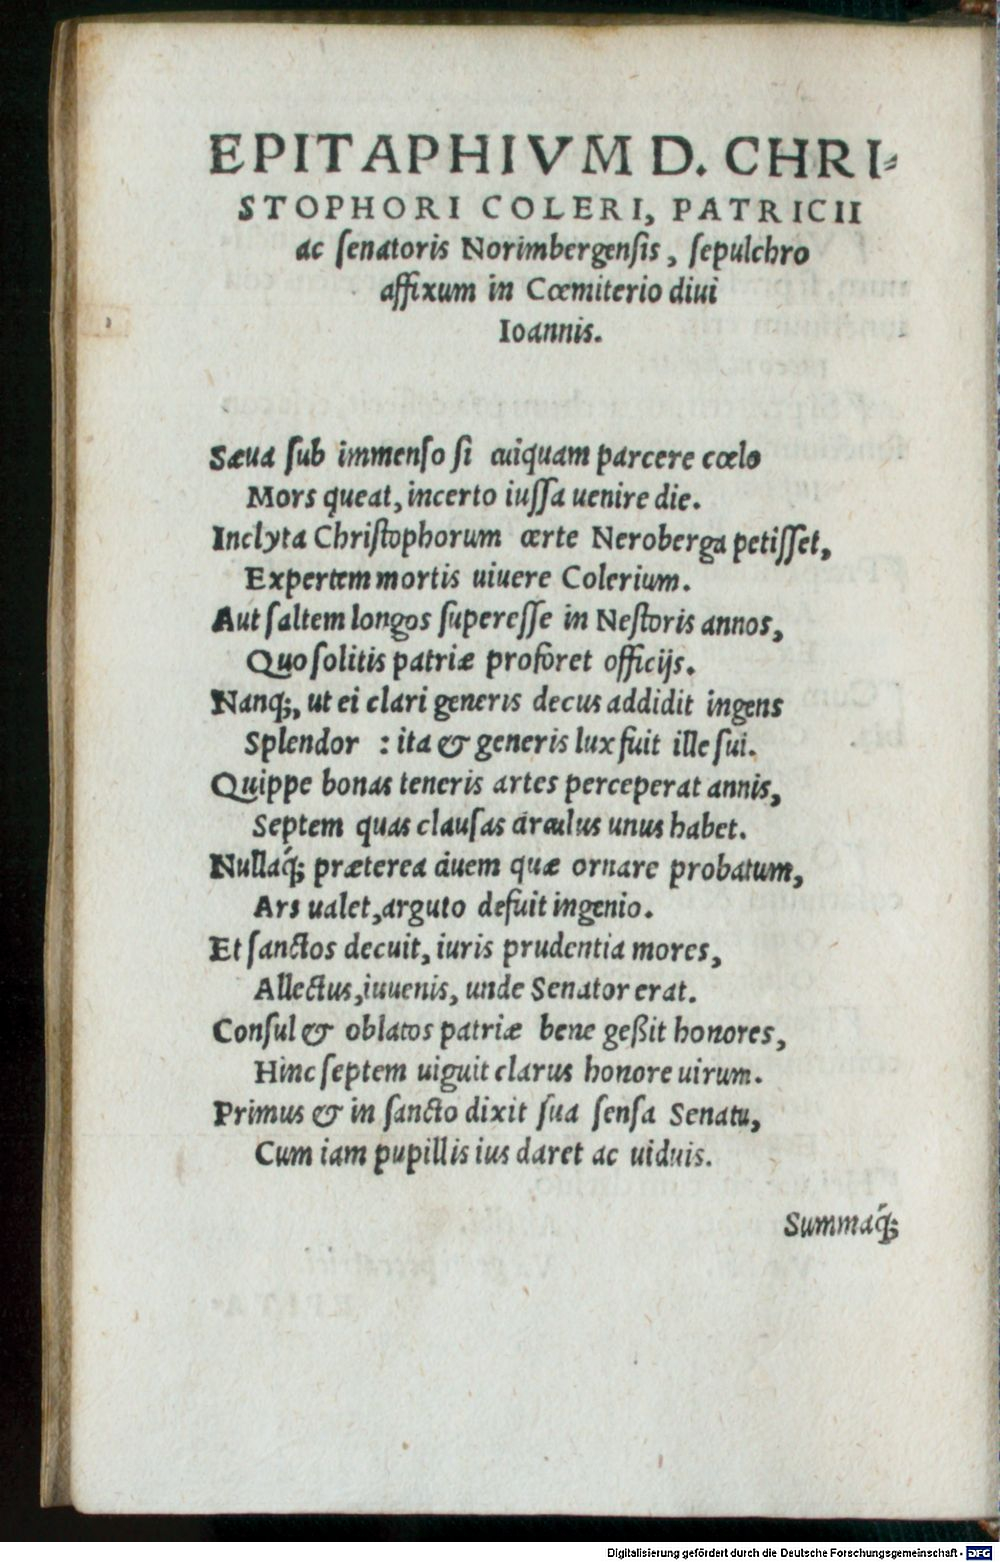 EPITAPHIVM D. CHRI-
STOPHORI COLERI, PATRICII
ac ſenatoris Norimbergenſis, ſepulchro
affixum in Cœmiterio diui
Ioannis.
Sæua ſub immenſo ſi cuiquam parcere cœlo
Mors queat, incerto iuſſa uenire die.
Inclyta Chriſtophorum certe Neroberga petiſſet,
Expertem mortis uiuere Colerium.
Aut ſaltem longos ſupereſſe in Neſtoris annos,
Quo ſolitis patriæ proforet officijs.
Nanq;, ut ei clari generis decus addidit ingens
Splendor : ita & generis lux fuit ille ſui.
Quippe bonas teneris artes perceperat annis,
Septem quas clauſas circulus unus habet.
Nullaq́; præterea ciuem quæ ornare probatum,
Ars ualet, arguto defuit ingenio.
Et ſanctos decuit, iuris prudentia mores,
Allectus, iuuenis, unde Senator erat.
Conſul & oblatos patriæ bene geßit honores,
Hinc ſeptem uiguit clarus honore uirum.
Primus & in ſancto dixit ſua ſenſa Senatu,
Cum iam pupillis ius daret ac uiduis.
Summaq́;
Digitalisierung gefördert durch die Deutsche Forschungsgemeinschaft - DFG